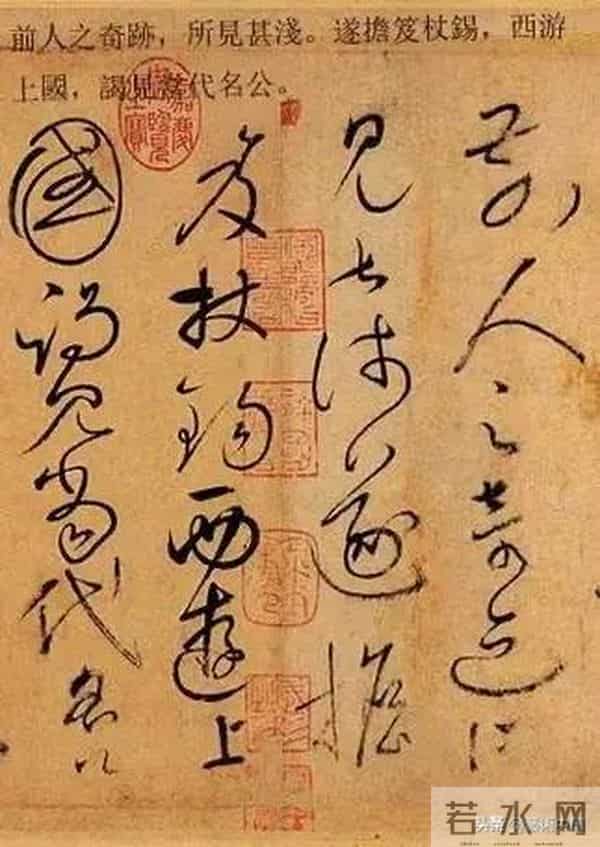 前人之奇跡，所見甚淺。遂擔笈杖錫，西游
上國，謁見當代名公。
前人之奇迹所
見甚淺遂擔
笈杖錫西遊上
國謁見當代名公
嘉慶御覽之寶
若水网
头条